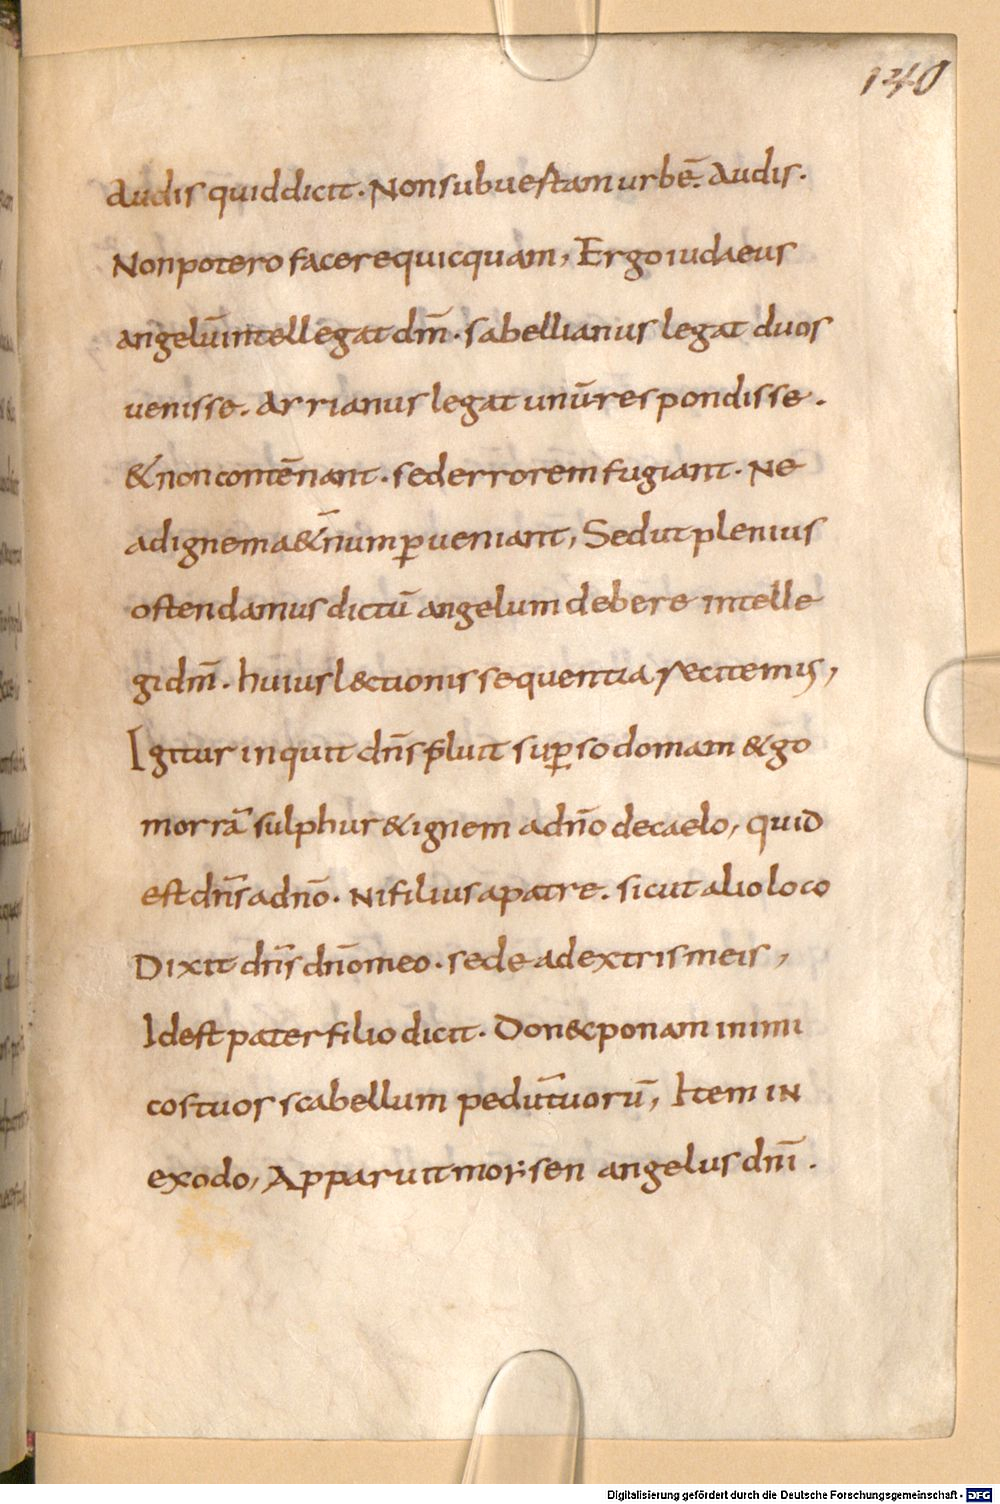 140
Audis quid dicit. Non subuestam urbē. Audis.
Non potero facere quicquam, Ergo iudaeus
angelū intellegat dm̄. sabellianus legat duos
uenisse. Arrianus legat unū respondisse.
& non contēnant. sed errorem fugiant. Ne
ad ignem a&̄num ꝑueniant, Sed ut plenius
ostendamus dictū angelum debere intelle
gi dm̄. huius l&ctionis sequentia recitemus,
Igitur inquit dn̄s pluit suꝑ sodomam & go
morrā sulphur & ignem a dn̄o de caelo, quid
est dn̄s a dn̄o. Ni filius a patre. sicut alio loco
Dixit dn̄s dn̄o meo. sede ad extris meis,
Id est pater filio dicit. Don&c ponam inimi
cos tuos scabellum pedū tuorū, Item in
exodo, Apparuit moysen angelus dn̄i.
Digitalisierung gefördert durch die Deutsche Forschungsgemeinschaft - DFG